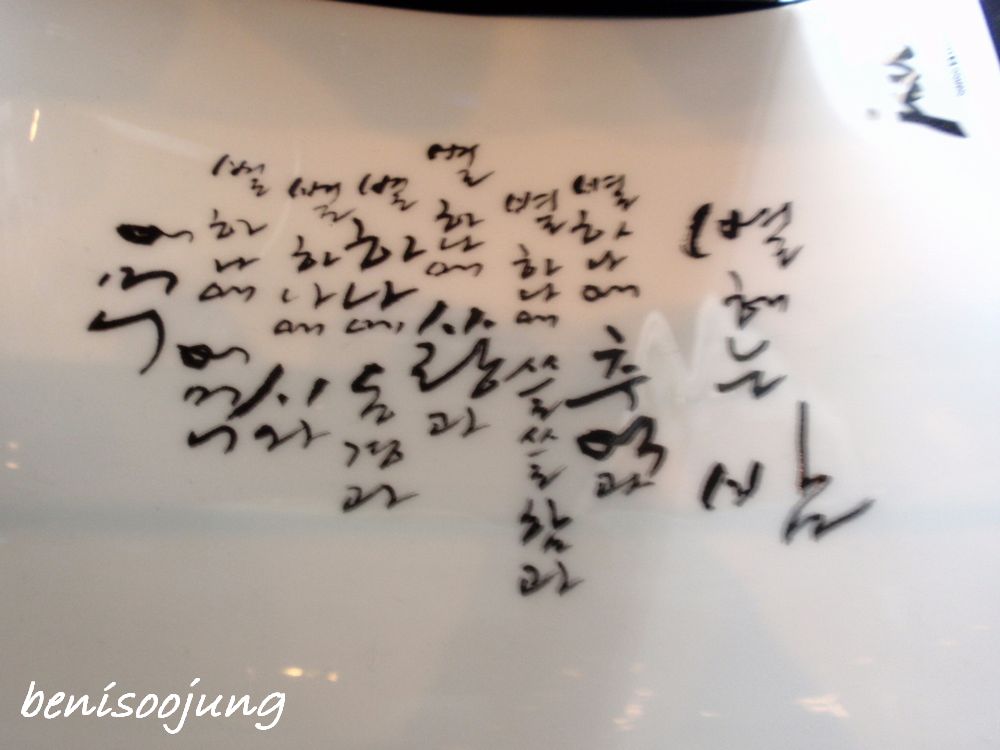 별 헤는 밤
별 하나에 추억과
별 하나에 쓸쓸함과
별 하나에 사랑과
별 하나에 동경과
별 하나에 시와
별 하나에 어머니
어머니
benisoojung